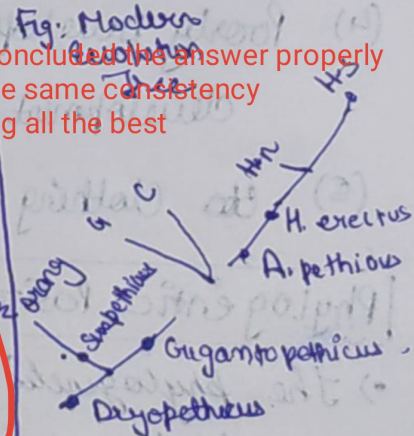 Fig: Modern
Evolution
Tree
oncluded the answer properly
e same consistency
g all the best
H.S
H.N
H. erectus
A. pethious
C
G
orang
Sivapethicus
Gigantopethicus
Dryopethecus